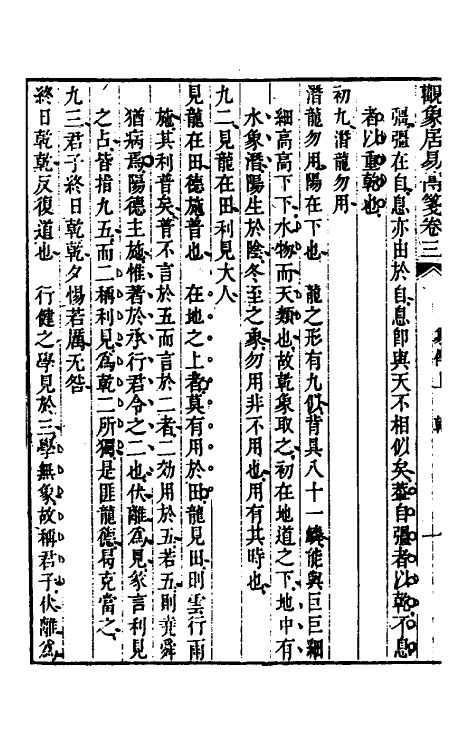 觀象居易傳箋卷三 象傳上 乾 一
彊彊在自息亦由於自息卽與天不相似矣蓋自彊者以乾不息
者以重乾也
初九潛龍勿用
潛龍勿用陽在下也 龍之形有九似背具八十一鱗能與巨巨細
細高高下下水物而天類也故乾象取之初在地道之下地中有
水象潛陽生於陰冬至之象勿用非不用也用有其時也
九二見龍在田利見大人
見龍在田德施普也 在地之上者莫有用於田龍見田則雲行雨
施其利普矣普不言於五而言於二者二効用於五若五則堯舜
猶病焉陽德主施惟著於承行君令之二也伏離爲見彖言利見
之占皆指九五而二稱利見爲乾二所獨是匪龍德曷克當之
九三君子終日乾乾夕惕若厲无咎
終日乾乾反復道也 行健之學見於三學無象故稱君子伏離爲